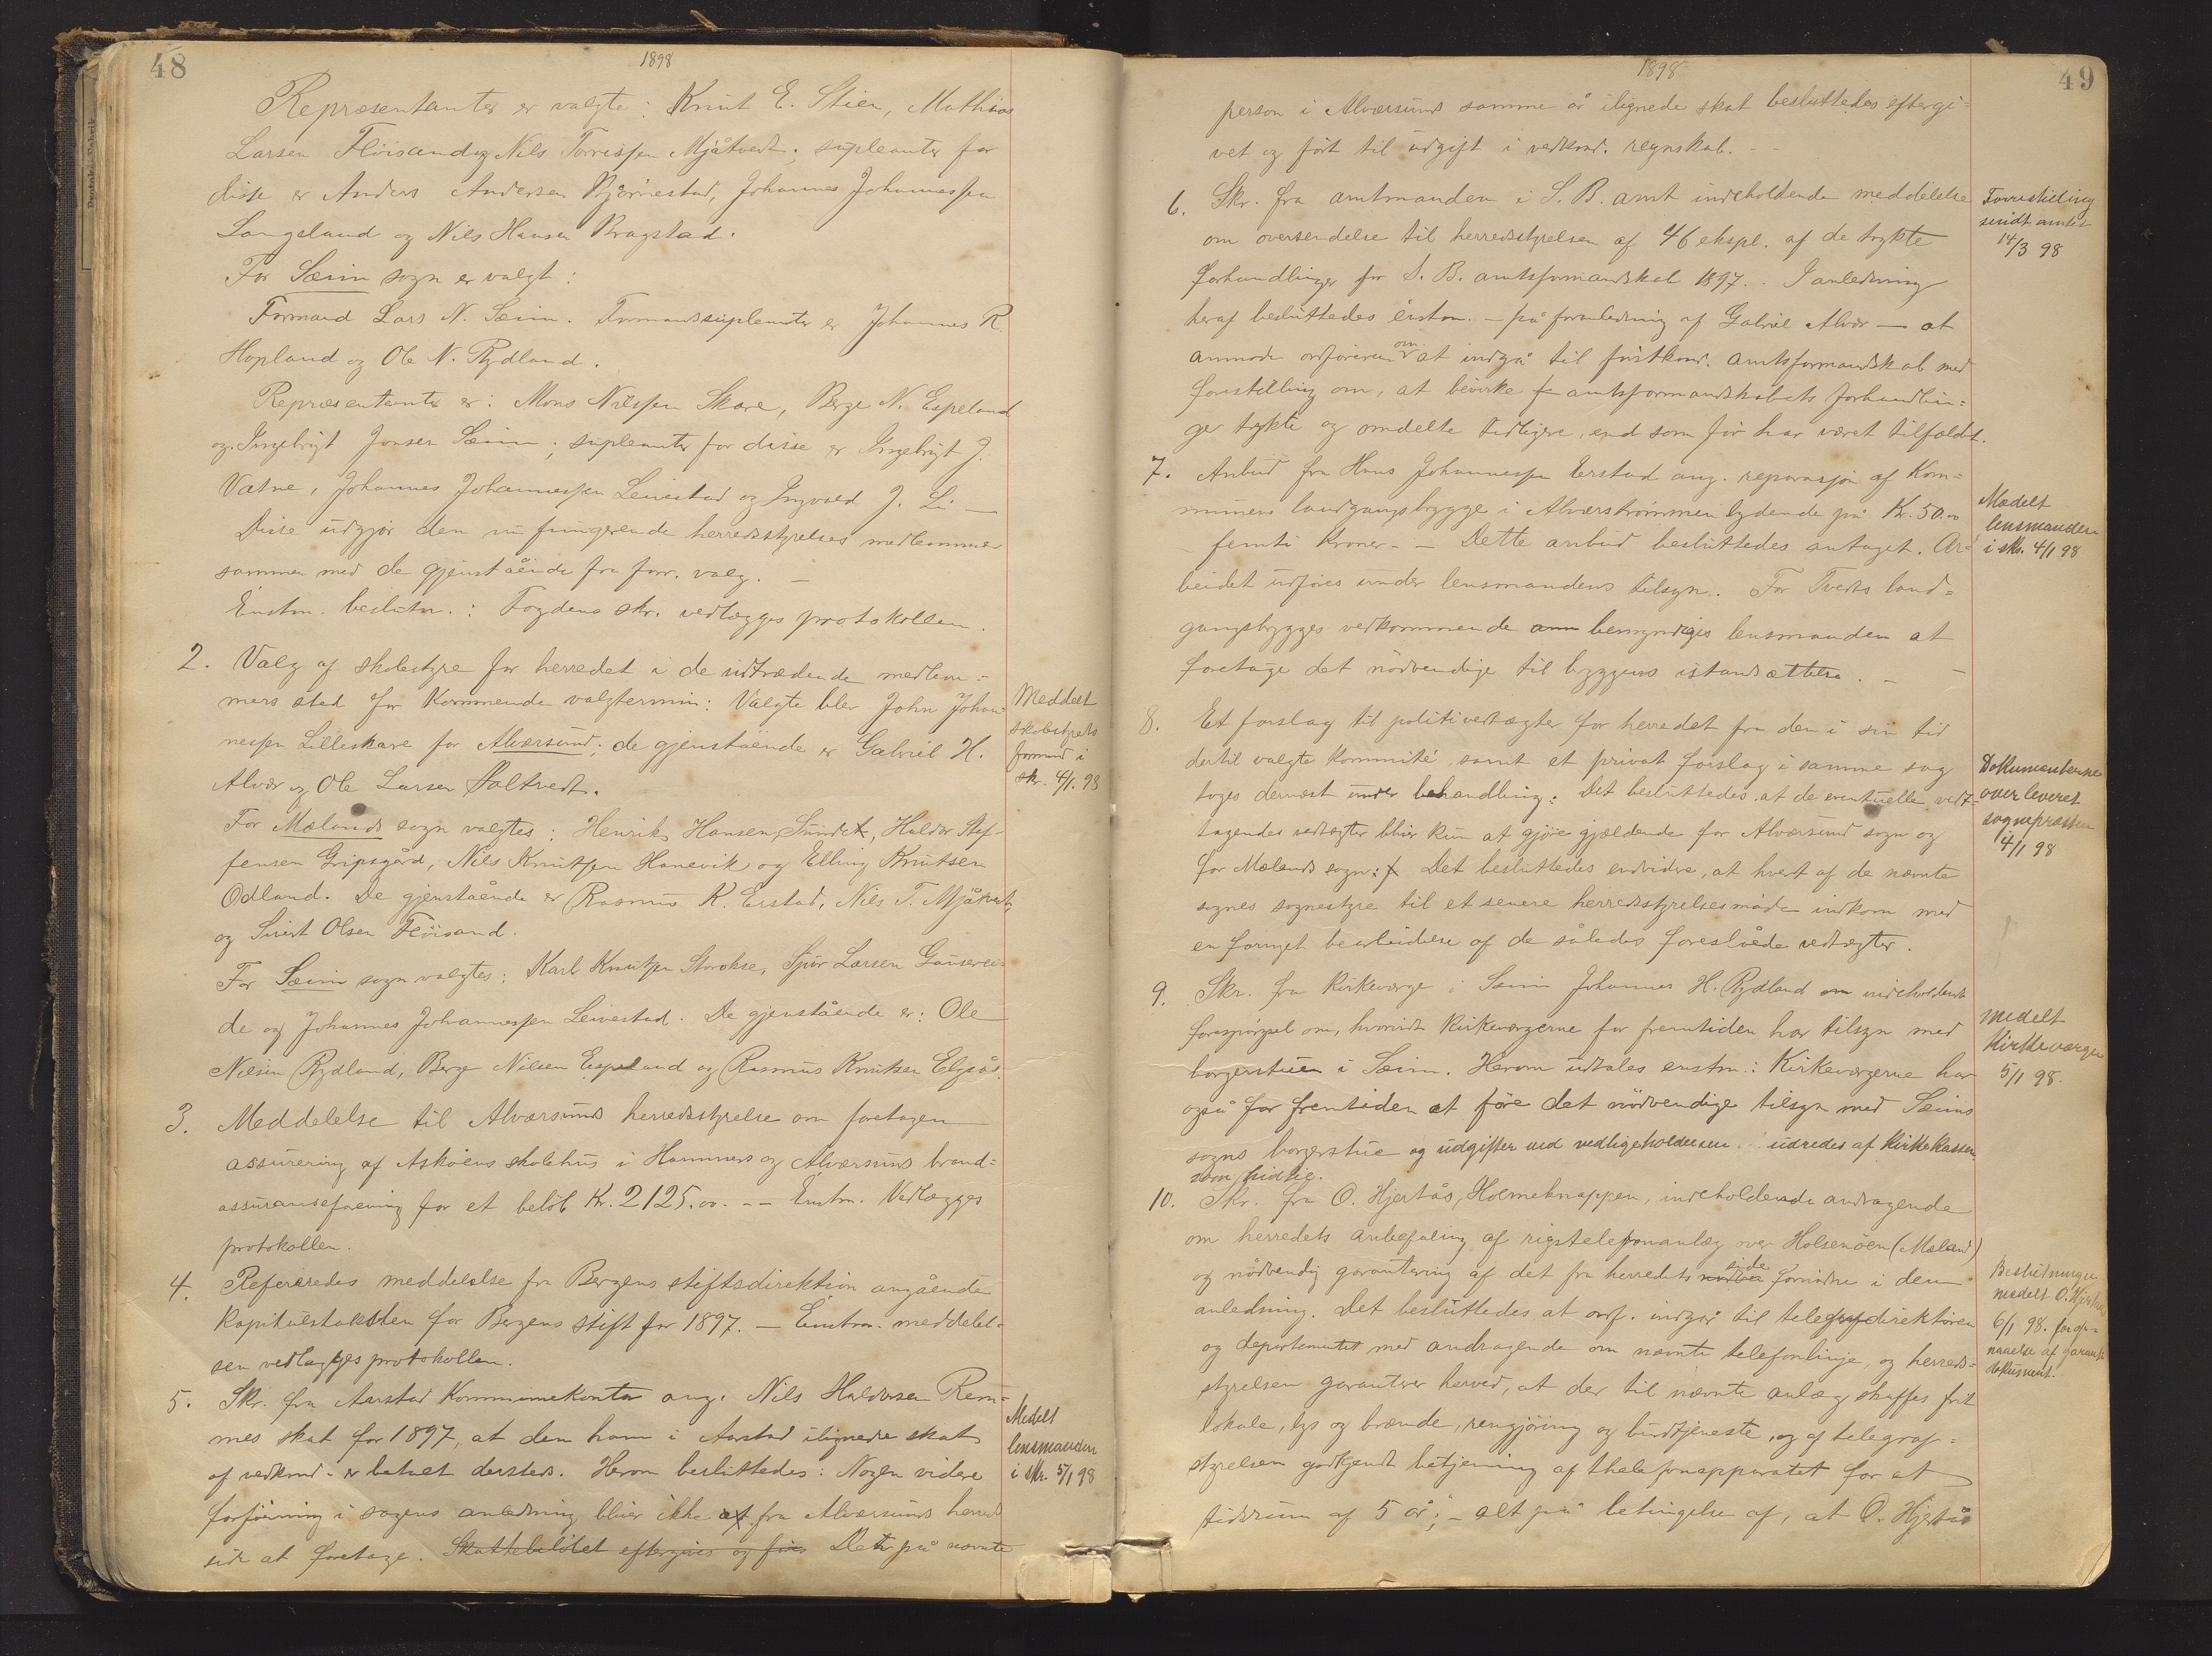 48
1898
Repræsentanter er valgte: Knut E. Stien, Mathias
Larsen Flöisand og Nils Torrissen Mjåtvedt; supleanter for
disse er Anders Andersen Bjørnestad, Johannes Johannessen
Langeland og Nils Hansen Bragstad.
For Sæim sogn er valgt:
Formand Lars N. Sæim. Formandssupleanter er Johannes R.
Hopland og Ole N. Rydland.
Repræsentanter er: Mons Nilssen Skare, Berge N. Espeland
og Ingebrigt Jonsen Sæim; supleanter for disse er Ingebrigt J.
Vatne, Johannes Johannessen Leivestad og Ingvald J. Li —
Disse udgjör den nu fungerende herredsstyrelses medlemmer
sammen med de gjenstående fra forr. valg. —
Enstm. beslutn.: Fogdens skr. vedlægges protokollen.
2. Valg af skolestyre for herredet i de udtrædende medlem=
mers sted for kommende valgtermin: Valgte blev John Johan-
nessen Lilleskare for Alværsund; de gjenstående er Gabriel H.
Alvær og Ole Larsen Saltvedt.
Meddelt
skolestyrets
formand i
skr. 4/1. 98
For Mælands sogn valgtes: Henrik Hansen Sundet, Haldor Stef-
fensen Gripsgård, Nils Knutssen Hanevik og Elling Knutsen
Odland. De gjenstående er Rasmus K. Erstad, Nils T. Mjåtvedt
og Sivert Olsen Flöisand.
For Sæim sogn valgtes: Karl Knutssen Storoksе, Sjur Larsen Gauserei-
de og Johannes Johannessen Leivestad. De gjenstående er: Ole
Nilsen Rydland, Berge Nilsen Espeland og Rasmus Knutsen Elgsås.
3. Meddelelse til Alværsunds herredsstyrelse om foretagen
assurering af Asköens skolehus i Hammers og Alværsunds brand=
assuranseforening for et belöb Kr. 2125.00. -- Enstm. Vedlægges
protokollen.
4. Refereredes meddelelse fra Bergens stiftsdirektion angående
kapitelstaksten for Bergens stift for 1897. — Enstm. meddelel-
sen vedlægges protokollen.
5. Skr. fra Aarstad Kommunekontor ang. Nils Haldorsen Rem=
mes skat for 1897, at den ham i Aarstad ilignede skat
af vedkmd. er betalt dersteds. Herom besluttedes: Nogen videre
forföining i sagens anledning bliver ikke at fra Alværsunds herreds
side at foretage. Skattebelöbet eftergives og föres Den på nævnte
Medelt
lensmanden
i skr. 5/1 98
49
1898
person i Alværsund samme år ilignede skat besluttedes eftergi=
vet og fört til udgift i vedkmd. regnskab. --
6. Skr. fra amtmanden i S. B. amt indeholdende meddelelse
om oversendelse til herredsstyrelsen af 46 ekspl. af de trykte
forhandlinger for S. B. amtsformandskab 1897. . I anledning
heraf besluttedes enstm. — på foranledning af Gabriel Alvær — at
anmode ordföreren om at indgå til förstkmd. amtsformandskab med
forestilling om, at bevirke f amtsformandskabets forhandlin=
ger trykte og omdelte tidligere, end som för har været tilfældet.
Forrestilling
sendt amtet
14/3 98
7. Anbud fra Hans Johannessen Erstad ang. reparasjon af kom=
munens landgangsbrygge i Alværströmmen lydende på Kr. 50.00
femti kroner. — Dette anbud besluttedes antaget. Ar=
beidet udföres under lensmandens tilsyn. For Tvedts land=
gangsbrygges vedkommende ann bemyndiges lensmanden at
foretage det nödvendige til bryggens istandsættelse. —
Medelt
lensmanden
i skr. 4/1 98
8. Et forslag til politivedtægter for herredet fra den i sin tid
dertil valgte kommité, samt et privat forslag i samme sag
toges dernæst under behandling: Det besluttedes at de eventuelle ved-
tagendes vedtægter bliver kun at gjöre gjældende for Alværsund sogn og
for Mælands sogn: f Det besluttedes endvidere, at hvert af de nævnte
sognes sognestyre til et senere herredsstyrelsesmöde indkom med
en fornyet bearbeidelse af de således foreslåede vedtægter.
Dokumenterne
overleveret
sognepræsten
14/1 98
9. Skr. fra kirkeværge i Sæim Johannes H. Rydland om indeholdende
forespörgsel om, hvorvidt kirkeværgerne for fremtiden har tilsyn med
borgerstuen i Sæim. Herom udtales enstm.: Kirkeværgerne har
også for fremtiden at före det nödvendige tilsyn med Sæims
sogns borgerstue og udgifter ved vedligeholdelsen udredes af kirkekassen
som hidtil.
Medelt
Kirkeværgen
5/1 98.
10. Skr. fra O. Hjertås, Holmeknappen, indeholdende andragende
om herredets anbefaling af rigstelefonanlæg over Holsenöen (Mæland)
og nödvendig garantering af det fra herredets side fornödne i den
anledning. Det besluttedes at ordf. indgår til telegrafdirektören
og departementet med andragende om nævnte telefonlinje, og herreds=
styrelsen garanterer herved, at der til nævnte anlæg skaffes frit
lokale, lys og brænde, rengjöring og budtjeneste, og af telegraf=
styrelsen godkjendt betjening af thelefonapparatet for et
tidsrum af 5 år; — alt på betingelse af, at O. Hjertås
Beslutningen
medelt O. Hjertås
6/1 98. for op=
naaelse af garanti
dokument.